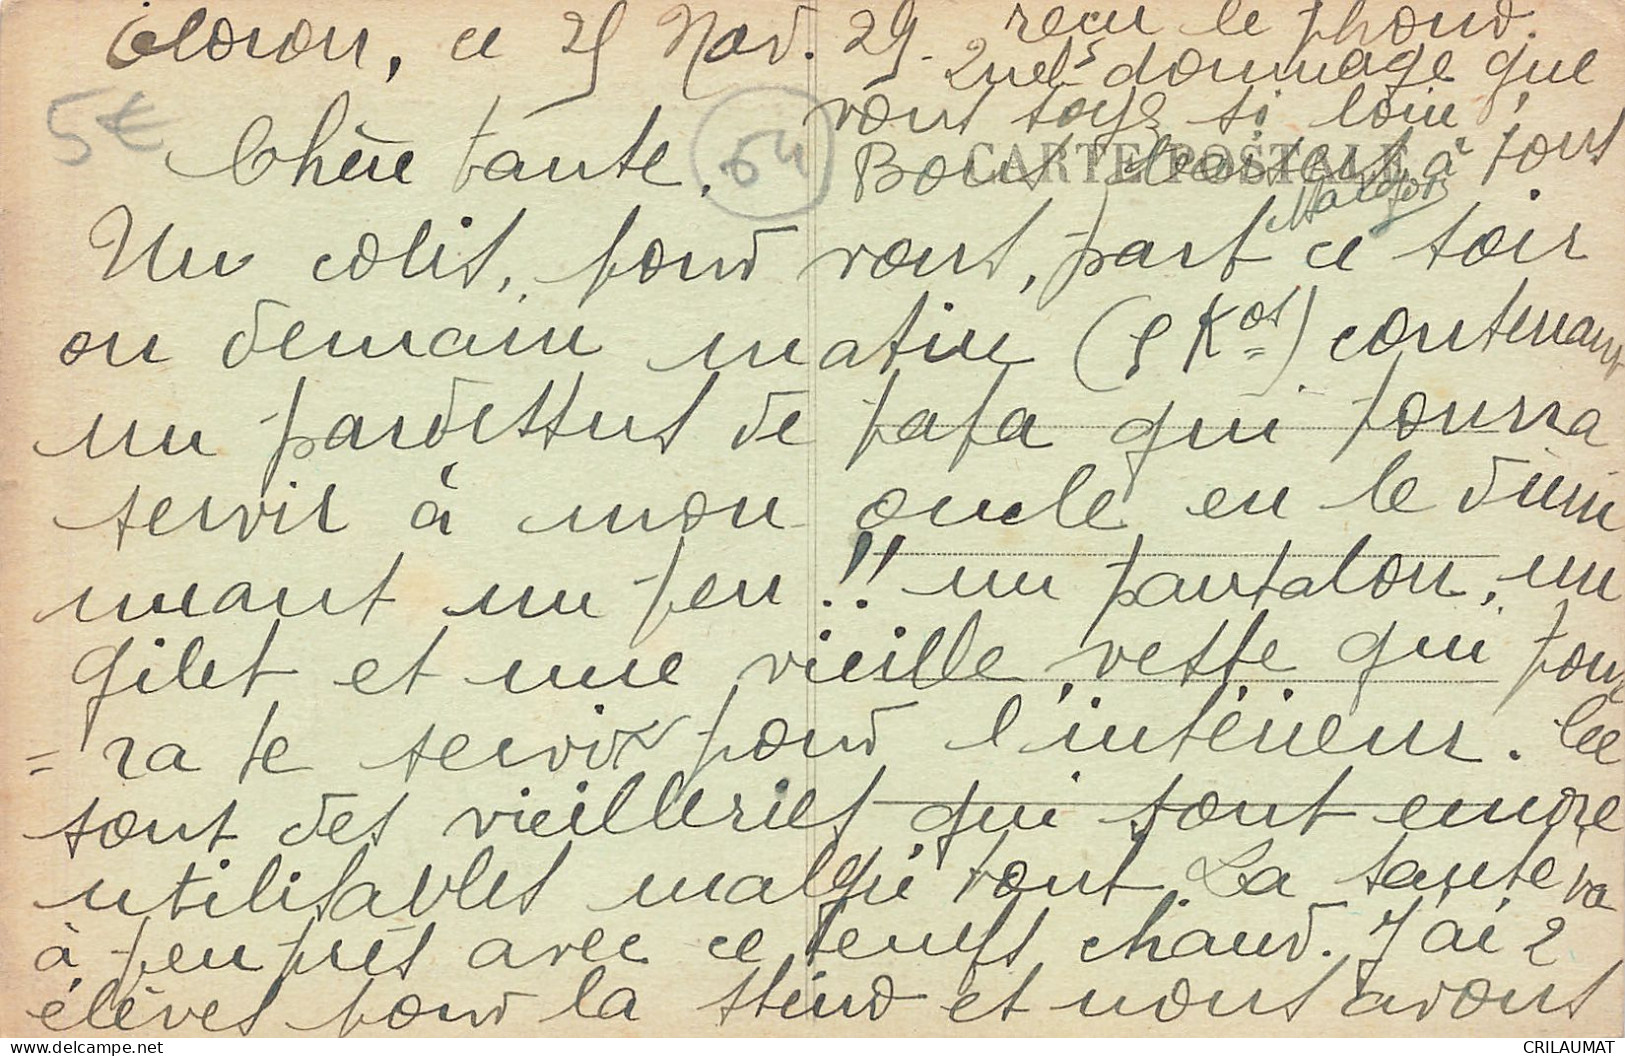 Oloron, ce 25 Nov. 29.
Chère tante.
Un colis, pour vous, part ce soir
ou demain matin (5 Kos) contenant
un pardessus de papa qui pourra
servir à mon oncle en le dimi
nuant un peu !! un pantalon, un
gilet et une vieille veste qui pour
= ra te servir pour l'intérieur. Ce
sont des vieilleries qui sont encore
utilisables malgré tout. La santé va
à peu près avec ce temps chaud. J'ai 2
élèves pour la sténo et nous avons
reçu le phono.
Quel dommage que
vous soyez si loin.
Bons baisers à tous
Margot
CARTE POSTALE
5€
64
CRILAUMAT